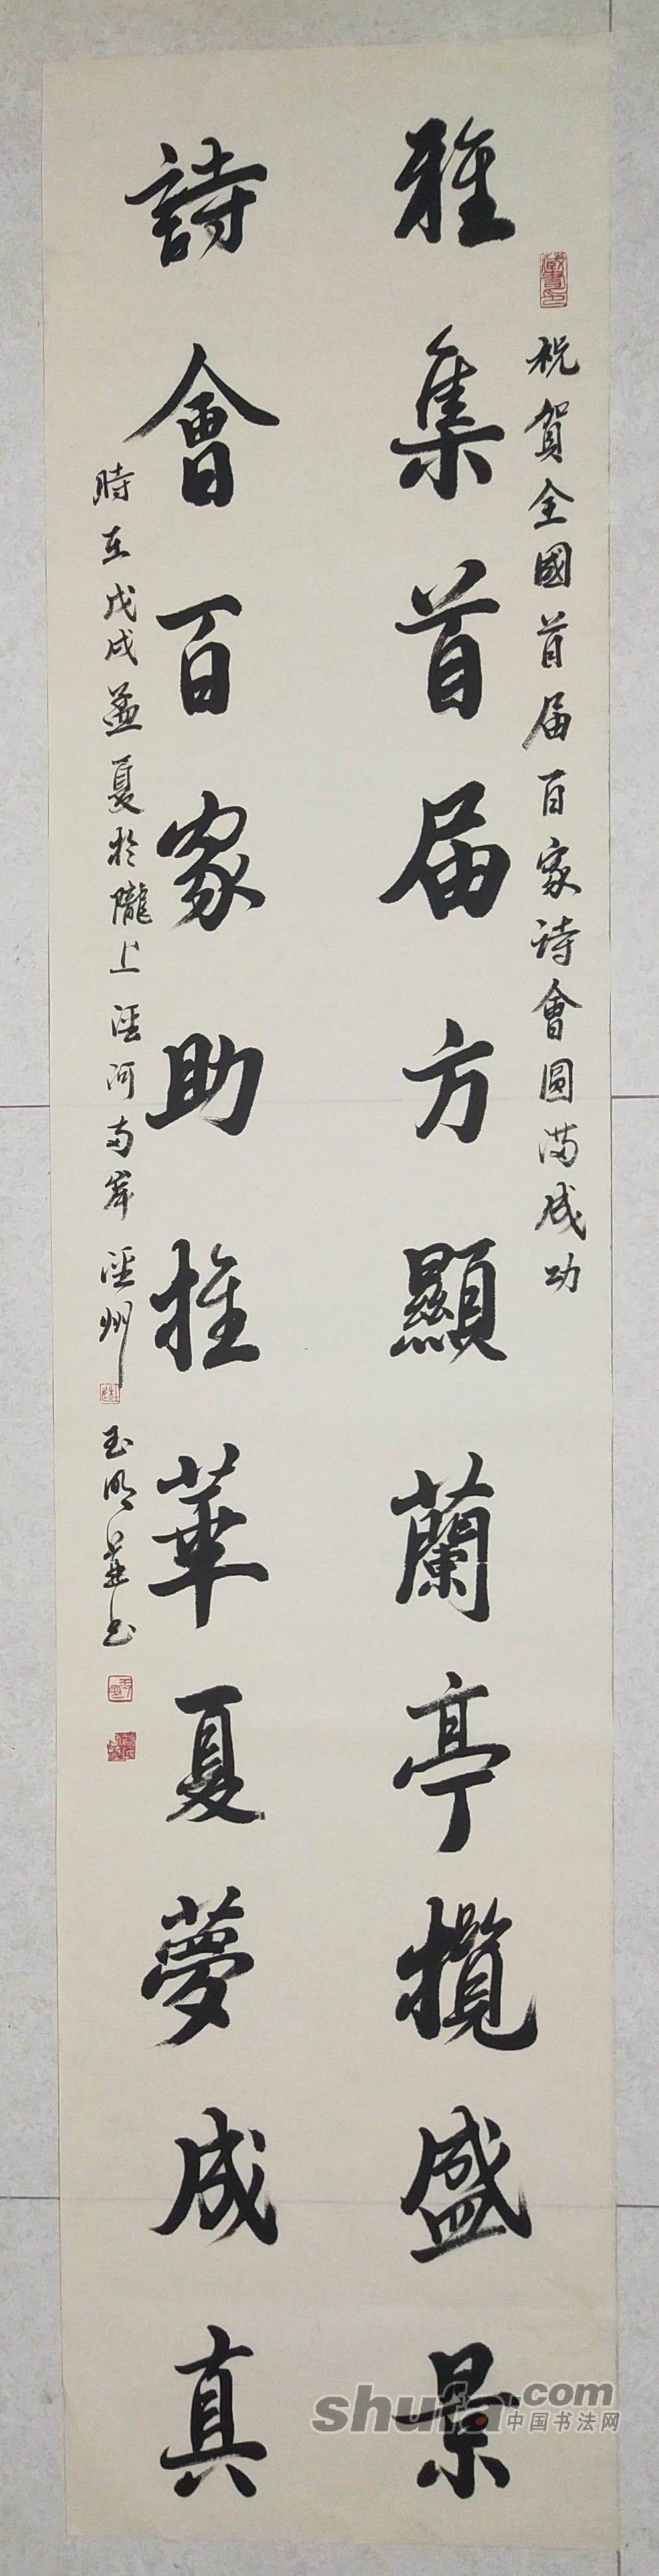 祝賀全國首届百家詩會圓满成功
雅集首届方顯蘭亭攬盛景
詩會百家助推華夏夢成真
時在戊戌孟夏於隴上涇河南岸涇州
玉明并书
shufa.com
中国书法网